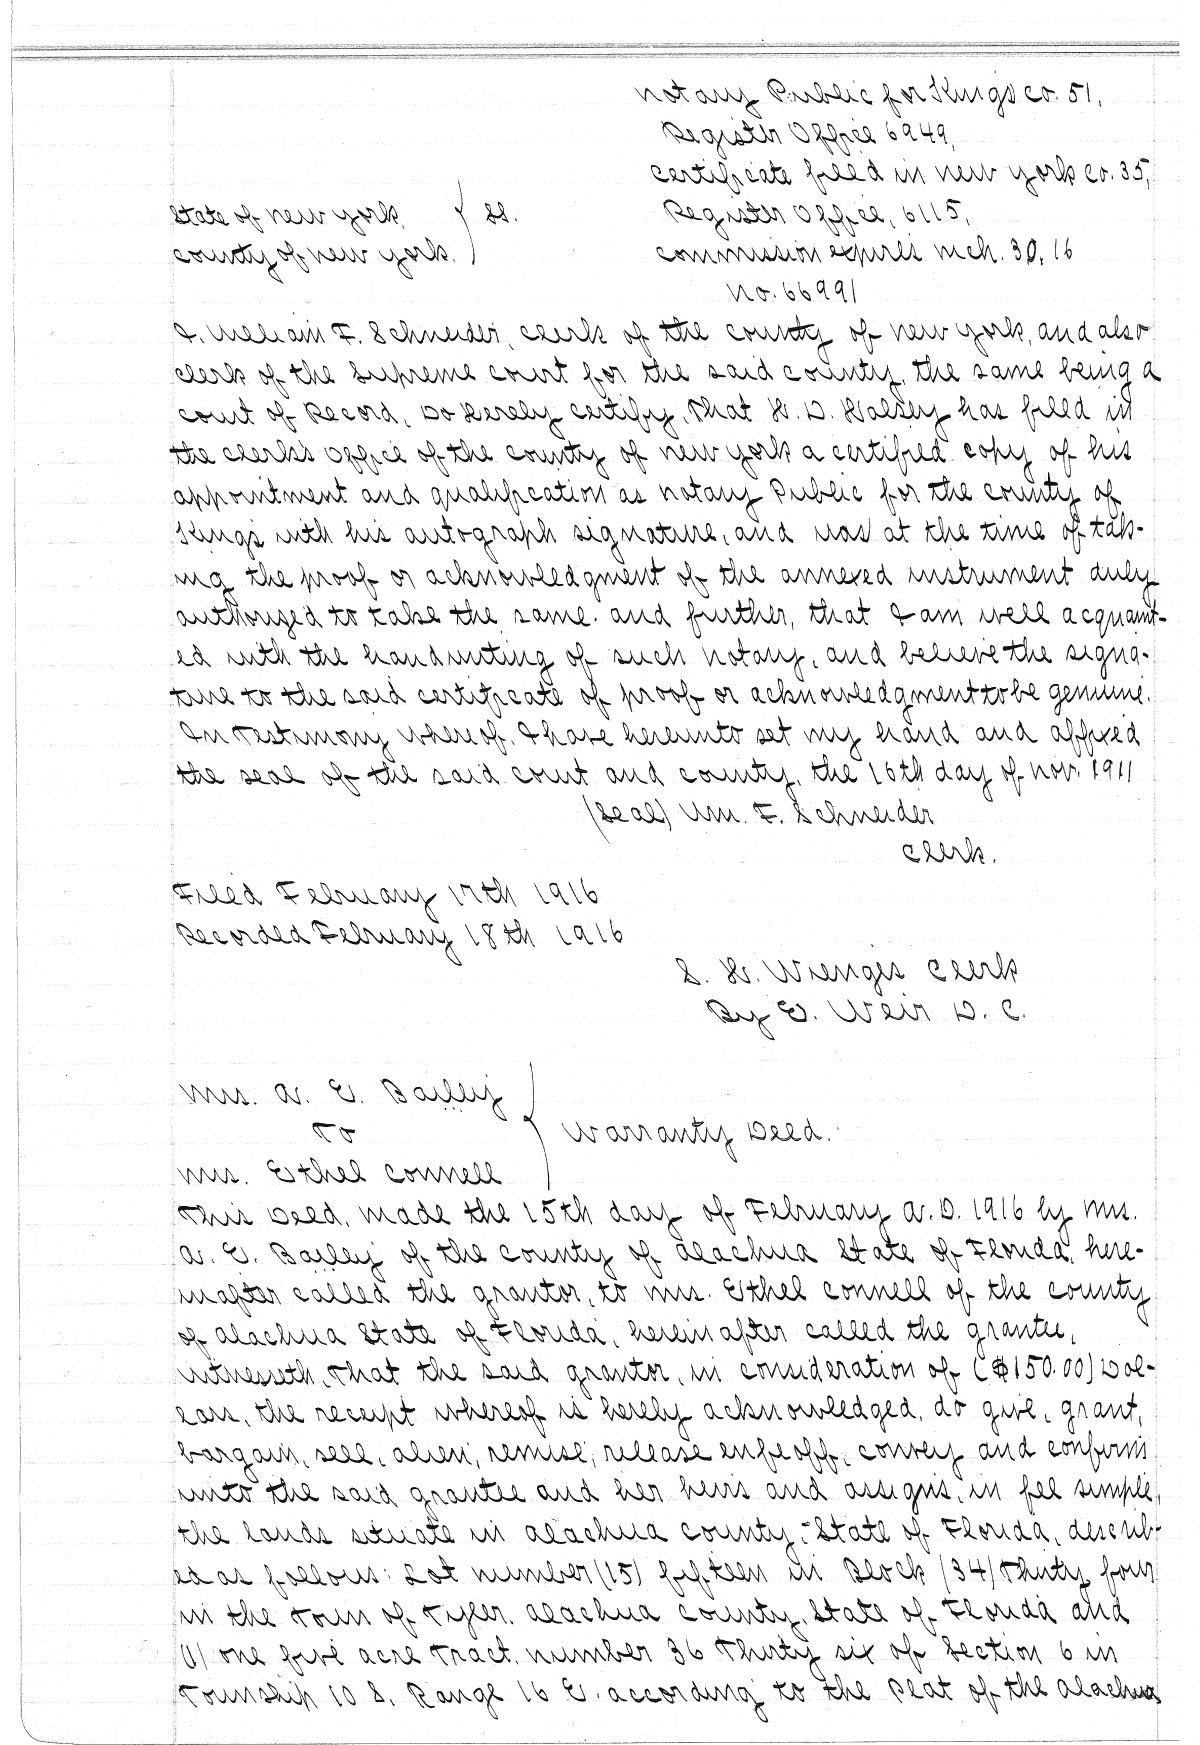 Notary Public for Kings co. 51,
Register Office 6949,
certificate filed in new york co. 35,
State of new york } ss.
Register Office, 6115,
county of new york.
commission expires mch. 30, 16
no. 66991
I. William F. Schneider, clerk of the county of new york, and also
clerk of the Supreme court for the said county, the same being a
court of Record, Do Hereby certify, that H. D. Halsey has filed in
the clerk's office of the county of new york a certified copy of his
appointment and qualification as notary Public for the county of
Kings with his autograph signature, and was at the time of tak-
ing the proof or acknowledgment of the annexed instrument duly
authorized to take the same. and further, that I am well acquaint-
ed with the handwriting of such notary, and believe the signa-
ture to the said certificate of proof or acknowledgment to be genuine.
In Testimony whereof, I have hereunto set my hand and affixed
the seal of the said court and county, the 16th day of nov. 1911
(Seal) Wm. F. Schneider
clerk.
Filed February 17th 1916
Recorded February 18th 1916
S. H. Wienges Clerk
By E. Weir D. C.
Mrs. A. E. Bailey
To } Warranty Deed.
Mrs. Ethel Connell
This Deed, made the 15th day of February A. D. 1916 by Mrs.
A. E. Bailey of the county of Alachua State of Florida, here-
inafter called the grantor, to Mrs. Ethel Connell of the county
of Alachua State of Florida, hereinafter called the grantee,
witnesseth, that the said grantor, in consideration of ($150.00) Dol-
lars, the receipt whereof is hereby acknowledged, do give, grant,
bargain, sell, alien, remise, release enfeoff, convey and confirm
unto the said grantee and her heirs and assigns, in fee simple,
the lands situate in Alachua county, State of Florida, describ-
ed as follows: Lot number (15) fifteen in Block (34) Thirty four
in the Town of Tyler. Alachua county, State of Florida and
(1) one five acre tract, number 36 Thirty six of Section 6 in
Township 10 S, Range 16 E. according to the Plat of the Alachua